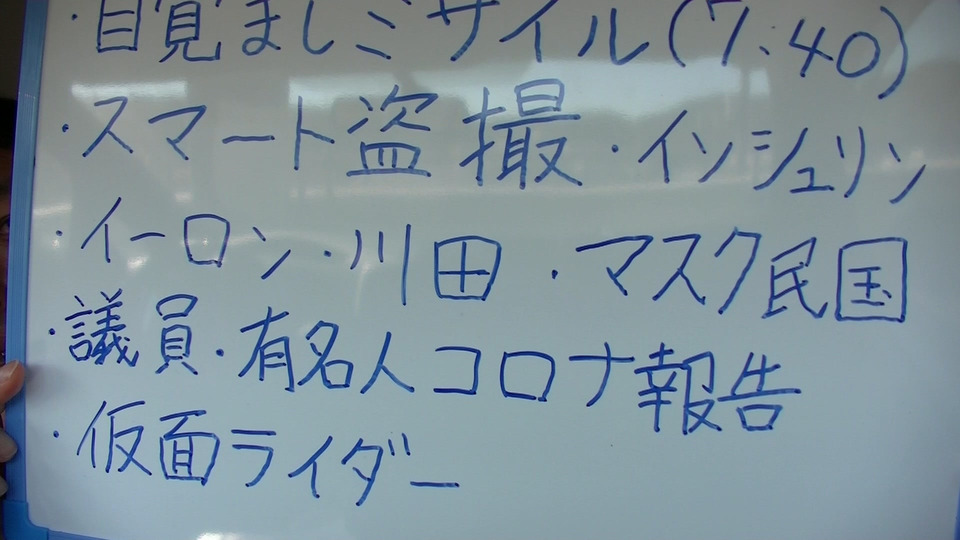 ・目覚ましミサイル(7:40)
・スマート盗撮・インシュリン
・イーロン・川田・マスク民国
・議員・有名人コロナ報告
・仮面ライダー